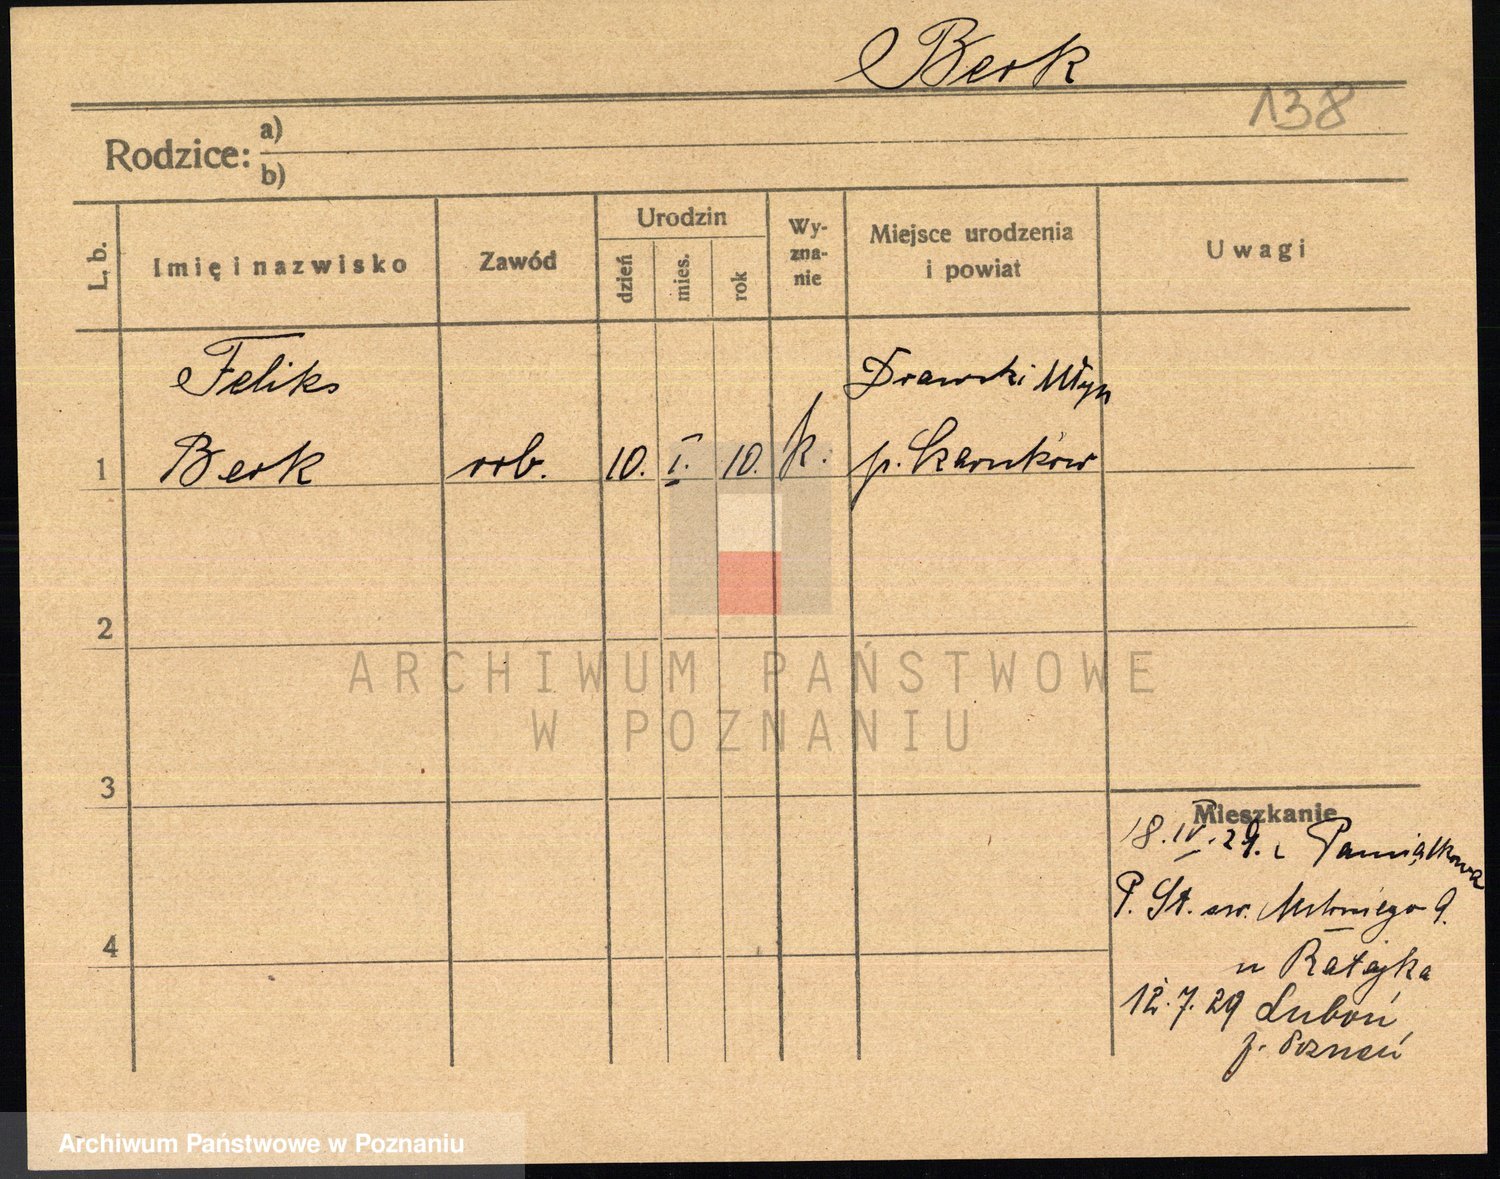 Berk
138
Rodzice: a)
b)
L. b.
Imię i nazwisko
Zawód
Urodzin
dzień
mies.
rok
Wy-
zna-
nie
Miejsce urodzenia
i powiat
Uwagi
Feliks
Drawski Młyn
1 Berk rob. 10. I. 10. k. p. Czarnków
2
3
4
Mieszkanie
18.IV.29. z Pamiątkowa
P. St. św. Antoniego 9.
u Ratajka
12.7.29 Luboń
p. Poznań
ARCHIWUM PAŃSTWOWE
W POZNANIU
Archiwum Państwowe w Poznaniu